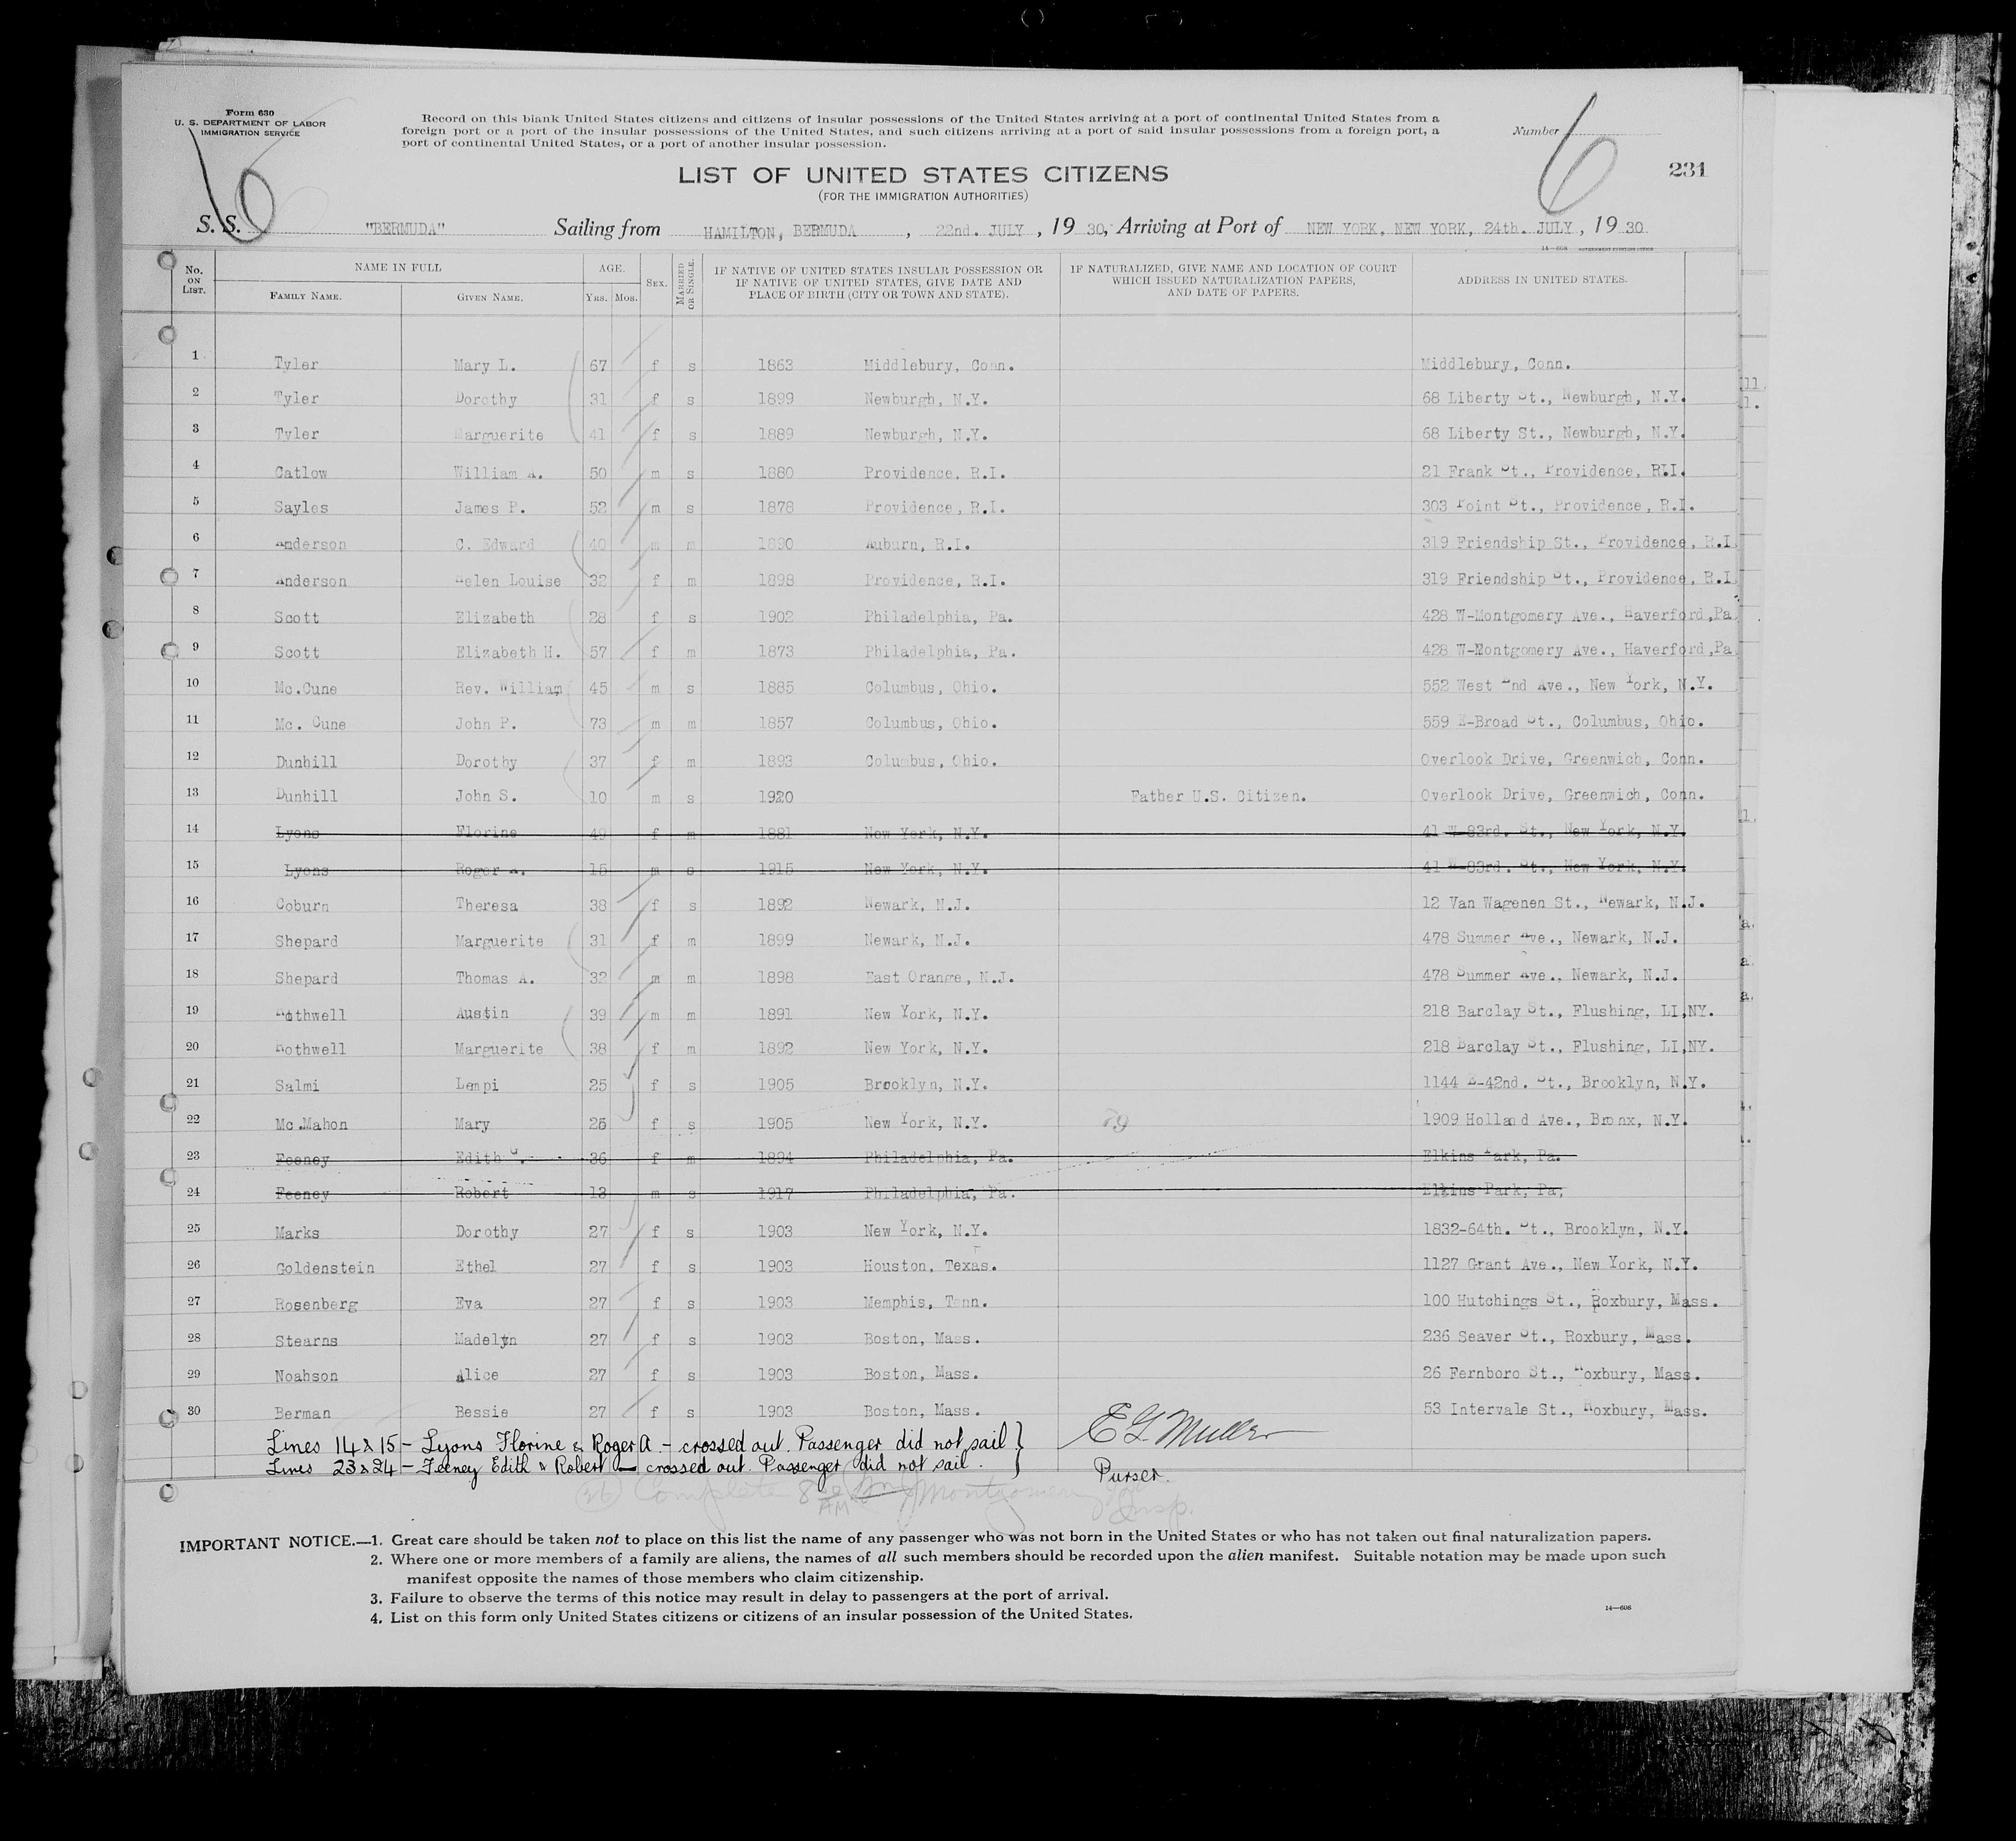 Form 630
U. S. DEPARTMENT OF LABOR
IMMIGRATION SERVICE
Record on this blank United States citizens and citizens of insular possessions of the United States arriving at a port of continental United States from a
foreign port or a port of the insular possessions of the United States, and such citizens arriving at a port of said insular possessions from a foreign port, a
port of continental United States, or a port of another insular possession.
Number 6
6
231
LIST OF UNITED STATES CITIZENS
(FOR THE IMMIGRATION AUTHORITIES)
S. S. "BERMUDA" Sailing from HAMILTON, BERMUDA, 22nd. JULY, 19 30, Arriving at Port of NEW YORK, NEW YORK, 24th. JULY, 19 30
No. ON LIST. NAME IN FULL FAMILY NAME. GIVEN NAME. AGE. YRS. MOS. SEX. MARRIED OR SINGLE. IF NATIVE OF UNITED STATES INSULAR POSSESSION OR IF NATIVE OF UNITED STATES, GIVE DATE AND PLACE OF BIRTH (CITY OR TOWN AND STATE). IF NATURALIZED, GIVE NAME AND LOCATION OF COURT WHICH ISSUED NATURALIZATION PAPERS, AND DATE OF PAPERS. ADDRESS IN UNITED STATES.
1 Tyler Mary L. 67 f s 1863 Middlebury, Conn. Middlebury, Conn.
2 Tyler Dorothy 31 f s 1899 Newburgh, N.Y. 68 Liberty St., Newburgh, N.Y.
3 Tyler Marguerite 41 f s 1889 Newburgh, N.Y. 68 Liberty St., Newburgh, N.Y.
4 Catlow William A. 50 m s 1880 Providence, R.I. 21 Frank St., Providence, RII.
5 Sayles James P. 52 m s 1878 Providence, R.I. 303 Point St., Providence, R.I.
6 Anderson C. Edward 40 m m 1890 Auburn, R.I. 319 Friendship St., Providence, R.I
7 Anderson Helen Louise 32 f m 1898 Providence, R.I. 319 Friendship St., Providence, R.I
8 Scott Elizabeth 28 f s 1902 Philadelphia, Pa. 428 W-Montgomery Ave., Haverford,Pa
9 Scott Elizabeth H. 57 f m 1873 Philadelphia, Pa. 428 W-Montgomery Ave., Haverford,Pa
10 Mc.Cune Rev. William 45 m s 1885 Columbus, Ohio. 552 West End Ave., New York, N.Y.
11 Mc. Cune John P. 73 m m 1857 Columbus, Ohio. 559 E-Broad St., Columbus, Ohio.
12 Dunhill Dorothy 37 f m 1893 Columbus, Ohio. Overlook Drive, Greenwich, Conn.
13 Dunhill John S. 10 m s 1920 Father U.S. Citizen. Overlook Drive, Greenwich, Conn.
14 Lyons Florine 49 f m 1881 New York, N.Y. 41 W-83rd. St., New York, N.Y.
15 Lyons Roger A. 15 m s 1915 New York, N.Y. 41 W-83rd. St., New York, N.Y.
16 Coburn Theresa 38 f s 1892 Newark, N.J. 12 Van Wagenen St., Newark, N.J.
17 Shepard Marguerite 31 f m 1899 Newark, N.J. 478 Summer Ave., Newark, N.J.
18 Shepard Thomas A. 32 m m 1898 East Orange, N.J. 478 Summer Ave., Newark, N.J.
19 Austin 39 m m 1891 New York, N.Y. 218 Barclay St., Flushing, LI,NY.
20 Marguerite 38 f m 1892 New York, N.Y. 218 Barclay St., Flushing, LI,NY.
21 Salmi Lempi 25 f s 1905 Brooklyn, N.Y. 1144 E-42nd. St., Brooklyn, N.Y.
22 Mc.Mahon Mary 25 f s 1905 New York, N.Y. 79 1909 Holland Ave., Bronx, N.Y.
23 Feeney Edith G. 36 f m 1894 Philadelphia, Pa. Elkins Park, Pa.
24 Feeney Robert 13 m s 1917 Philadelphia, Pa. Elkins Park, Pa.
25 Marks Dorothy 27 f s 1903 New York, N.Y. 1832-64th. St., Brooklyn, N.Y.
26 Goldenstein Ethel 27 f s 1903 Houston, Texas. 1127 Grant Ave., New York, N.Y.
27 Rosenberg Eva 27 f s 1903 Memphis, Tenn. 100 Hutchings St., Roxbury, Mass.
28 Stearns Madelyn 27 f s 1903 Boston, Mass. 236 Seaver St., Roxbury, Mass.
29 Noahson Alice 27 f s 1903 Boston, Mass. 26 Fernboro St., Roxbury, Mass.
30 Berman Bessie 27 f s 1903 Boston, Mass. 53 Intervale St., Roxbury, Mass.
Lines 14 & 15 - Lyons Florine & Roger A. - crossed out. Passenger did not sail }
Lines 23 & 24 - Feeney Edith & Robert - crossed out. Passenger did not sail. }
E G Muller
Purser.
(26) Complete 8 AM Montgomery
Insp.
IMPORTANT NOTICE.—1. Great care should be taken not to place on this list the name of any passenger who was not born in the United States or who has not taken out final naturalization papers.
2. Where one or more members of a family are aliens, the names of all such members should be recorded upon the alien manifest. Suitable notation may be made upon such
manifest opposite the names of those members who claim citizenship.
3. Failure to observe the terms of this notice may result in delay to passengers at the port of arrival.
4. List on this form only United States citizens or citizens of an insular possession of the United States.
14—608